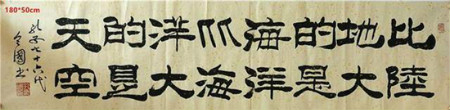 180*50cm
比陸
地大
的是
海洋
比海
洋大
的是
天空
孔子七十六代
令國書